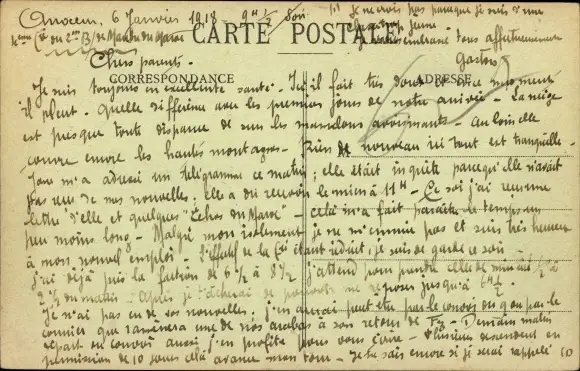 Anoceur, 6 Janvier 1918 - 9H 1/2 Soir
4eme Cie du 2me B/ de Marche du Maroc
CARTE POSTALE
(1) Je ne vois pas parce que je suis d'une
jeune.
Je vous embrasse tous affectueusement
Gaston
Chers parents.
CORRESPONDANCE
ADRESSE
Je suis toujours en excellente santé. Ici il fait très doux et en ce moment
il pleut. Quelle différence avec les premiers jours de notre arrivée. La neige
est presque toute disparue de sur les mamelons avoisinants - au loin elle
couvre encore les hautes montagnes - Rien de nouveau ici tout est tranquille.
m'a adressé un télégramme ce matin; elle était inquiète parce qu'elle n'avait
pas reçu de mes nouvelles; elle a dû recevoir le mien à 11H - Ce soir j'ai reçu une
lettre d'elle et quelques "Echos du Maroc" - cela m'a fait paraître le temps un
peu moins long - Malgré mon isolement je ne m'ennuie pas et suis très heureux
à mon nouvel emploi - L'effectif de la Cie étant réduit, je suis de garde ce soir -
j'ai déjà pris la faction de 6 1/2 à 8 1/2 j'attend pour prendre celle de minuit 1/2 à
2 1/2 du matin - Après je tâcherai de pouvoir me reposer jusqu'à 6H 1/2
Je n'ai pas eu de vos nouvelles; j'en aurai peut être par le convoi ou par le
courrier que ramènera une de nos arabas à son retour de Fez - Demain matin
départ du convoi aussi j'en profite pour vous écrire - Plusieurs descendent en
permission de 10 jours cela avance mon tour - Je ne sais encore si je serai rappelé (1)